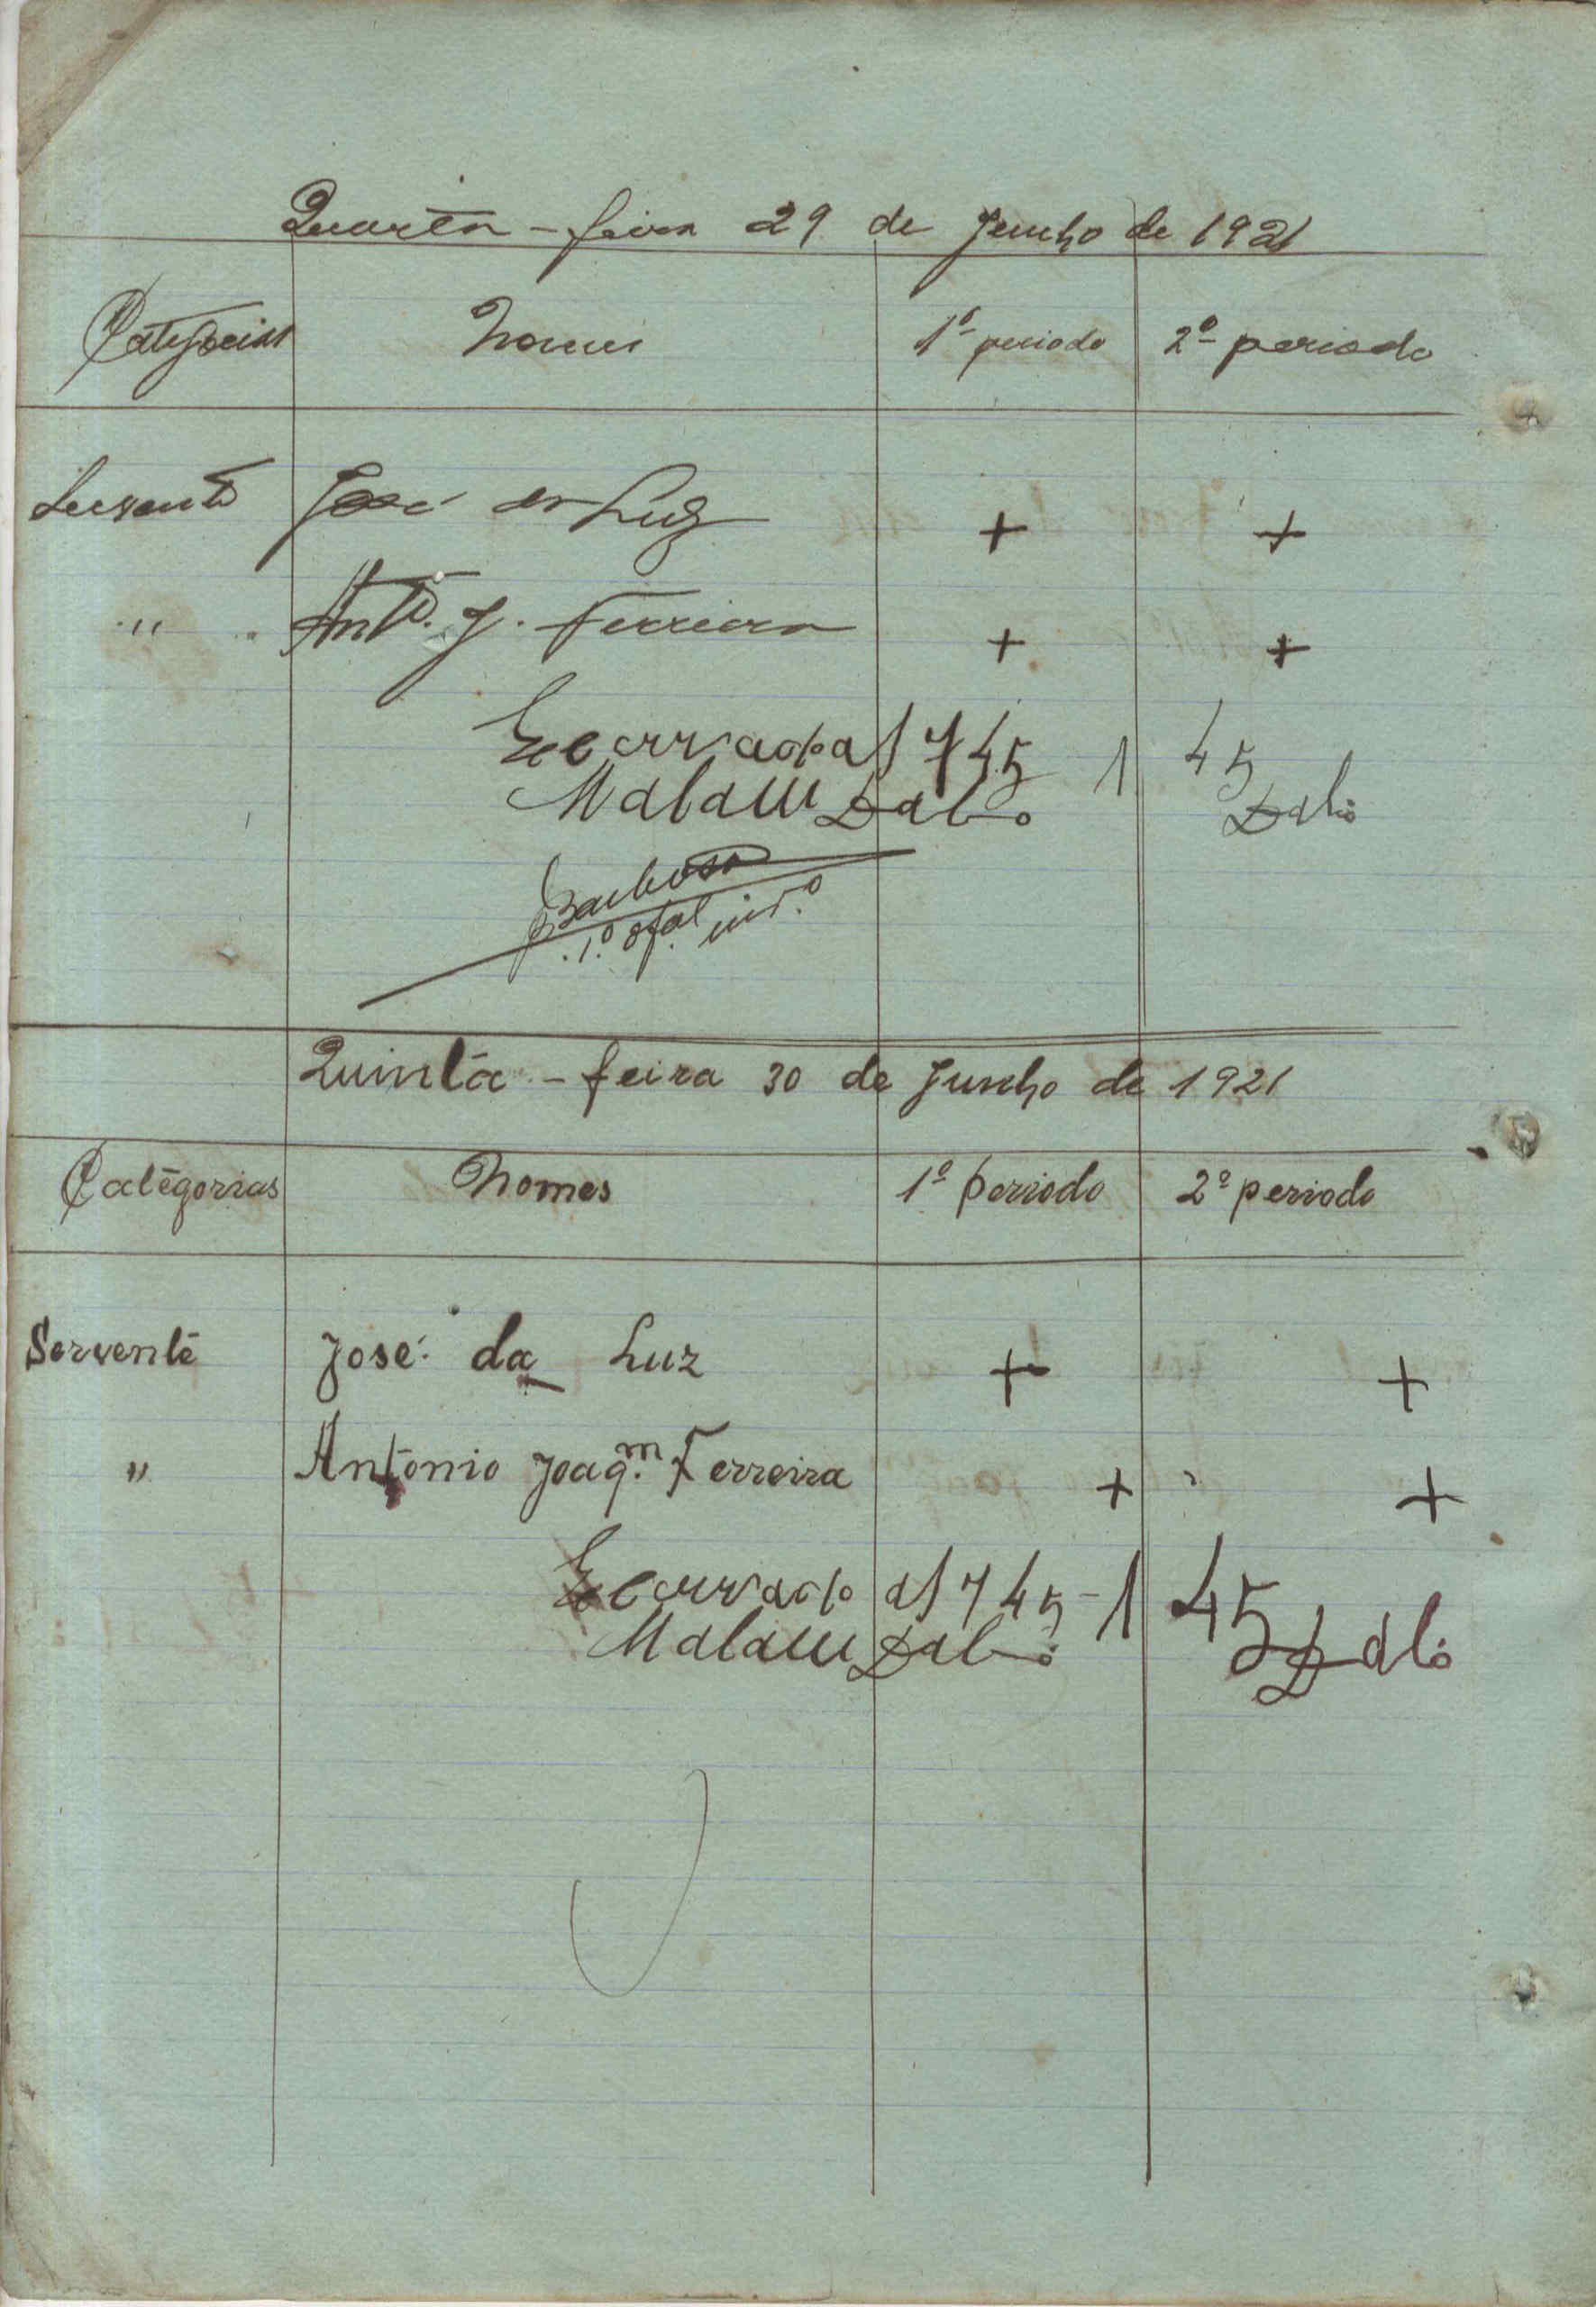 Quarta-feira 29 de Junho de 1921
Categorias Nomes 1º periodo 2º periodo
Servente José da Luz + +
" Antº. J. Ferreira + +
Ecerrado as 7 45 1 45
Malam Dabó Dabó
Barbosa
1.º ofal
Quinta-feira 30 de Junho de 1921
Categorias Nomes 1º periodo 2º periodo
Servente José da Luz + +
" Antonio Joaqm. Ferreira + +
Ecerrado as 7 45 - 1 45
Malam Dabó Dabó